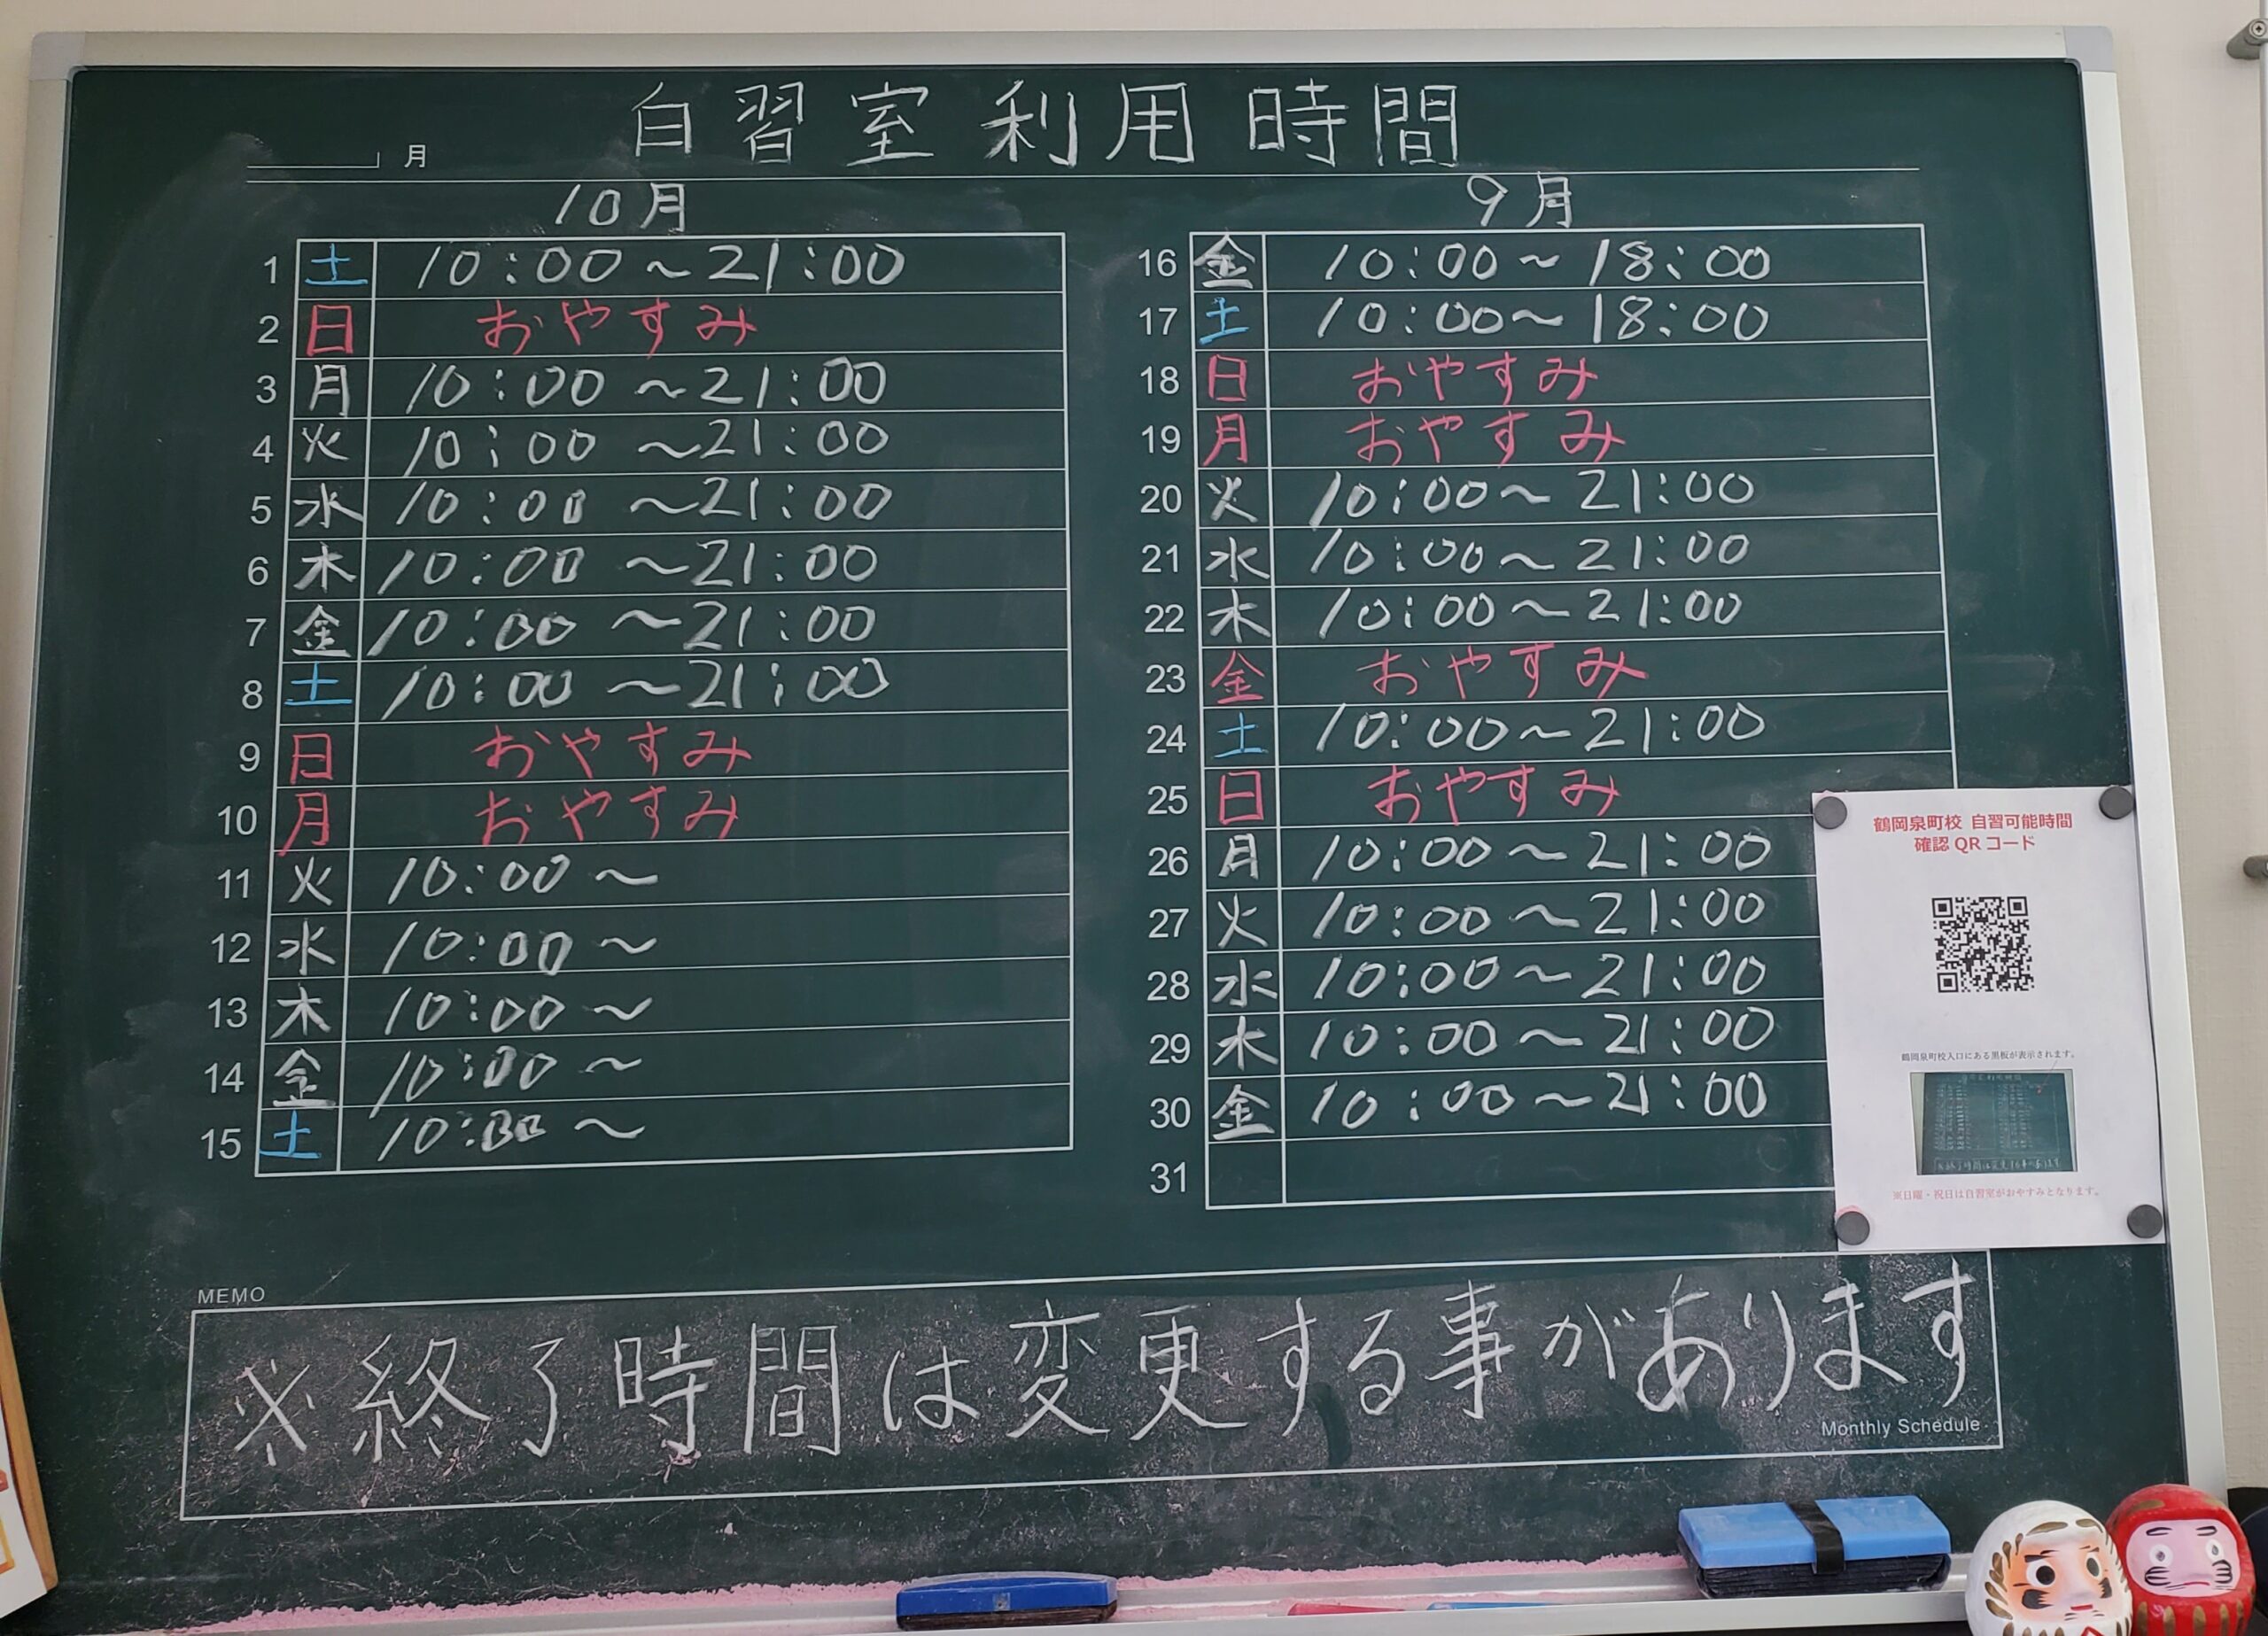 自習室利用時間
月
10月
1 土 10:00～21:00
2 日 おやすみ
3 月 10:00～21:00
4 火 10:00～21:00
5 水 10:00～21:00
6 木 10:00～21:00
7 金 10:00～21:00
8 土 10:00～21:00
9 日 おやすみ
10 月 おやすみ
11 火 10:00～
12 水 10:00～
13 木 10:00～
14 金 10:00～
15 土 10:00～
9月
16 金 10:00～18:00
17 土 10:00～18:00
18 日 おやすみ
19 月 おやすみ
20 火 10:00～21:00
21 水 10:00～21:00
22 木 10:00～21:00
23 金 おやすみ
24 土 10:00～21:00
25 日 おやすみ
26 月 10:00～21:00
27 火 10:00～21:00
28 水 10:00～21:00
29 木 10:00～21:00
30 金 10:00～21:00
31
鶴岡泉町校 自習可能時間
確認QRコード
鶴岡泉町校入口にある黒板が表示されます。
※日曜・祝日は自習室がおやすみとなります。
MEMO
※終了時間は変更する事があります
Monthly Schedule